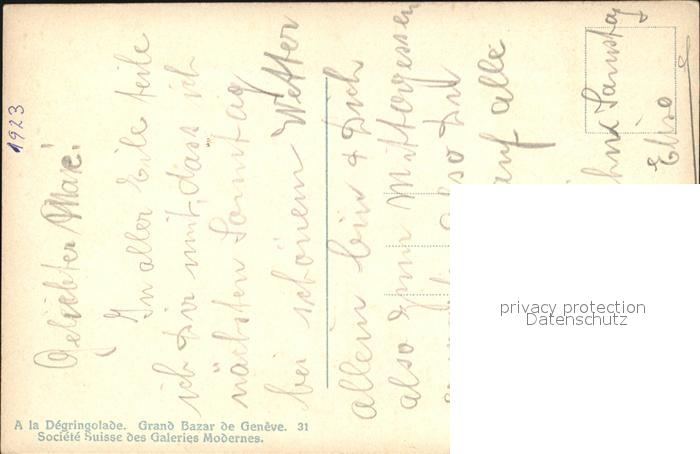 1923
Geliebter Max!
In aller Eile teile
ich Dir mit, dass ich
nächsten Sonntag
bei schönem Wetter
allein bin & Dich
also zum Mittagessen
also Du
auf alle
Samstag
Elise
A la Dégringolade. Grand Bazar de Genêve. 31
Société Suisse des Galeries Modernes.
privacy protection
Datenschutz